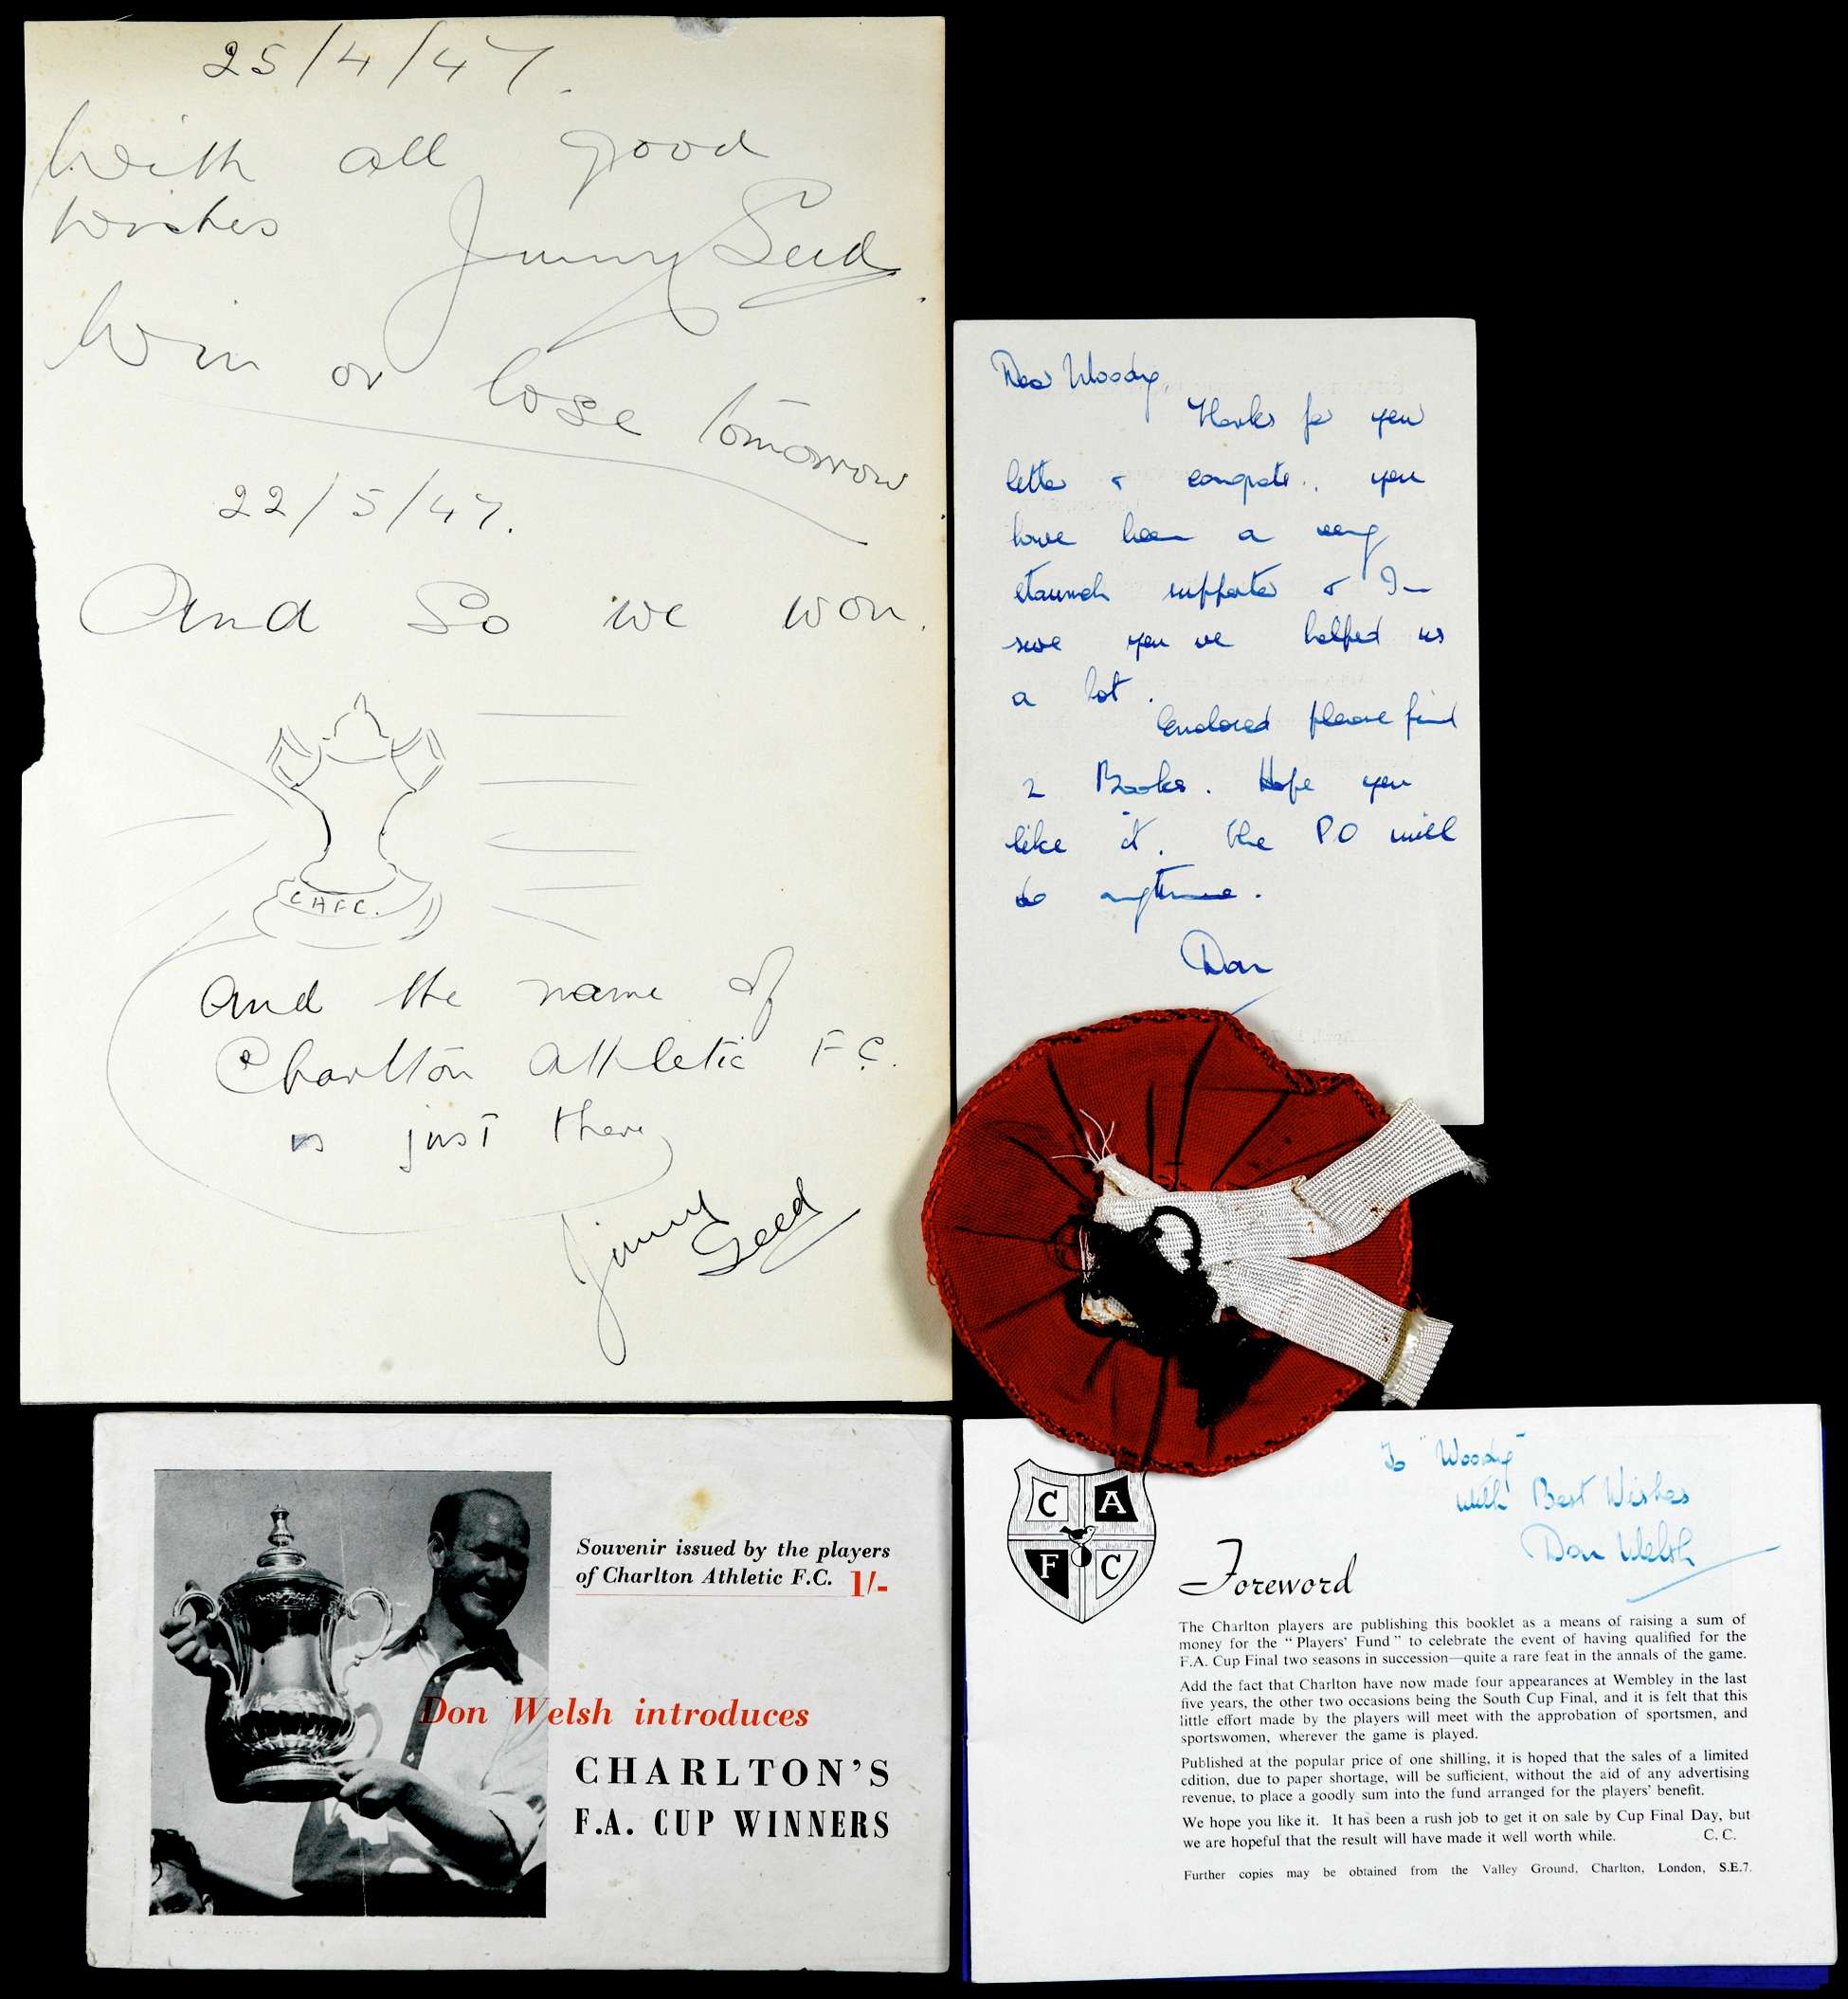 25/4/47.
With all good
wishes Jimmy Seed
Win or lose tomorrow
22/5/47.
And So we won.
CAFC.
And the name of
Charlton Athletic F.C.
is just there
Jimmy
Seed
Dear Woody,
Thanks for your
letter & congrats.. you
have been a very
staunch supporter & I'm
sure you've helped us
a lot.
Enclosed please find
2 Books. Hope you
like it. The P.O will
do anytime.
Don
Souvenir issued by the players
of Charlton Athletic F.C. 1/-
Don Welsh introduces
CHARLTON'S
F.A. CUP WINNERS
C A
F C
To "Woody"
with Best Wishes
Don Welsh
Foreword
The Charlton players are publishing this booklet as a means of raising a sum of
money for the "Players' Fund" to celebrate the event of having qualified for the
F.A. Cup Final two seasons in succession—quite a rare feat in the annals of the game.
Add the fact that Charlton have now made four appearances at Wembley in the last
five years, the other two occasions being the South Cup Final, and it is felt that this
little effort made by the players will meet with the approbation of sportsmen, and
sportswomen, wherever the game is played.
Published at the popular price of one shilling, it is hoped that the sales of a limited
edition, due to paper shortage, will be sufficient, without the aid of any advertising
revenue, to place a goodly sum into the fund arranged for the players' benefit.
We hope you like it. It has been a rush job to get it on sale by Cup Final Day, but
we are hopeful that the result will have made it well worth while. C. C.
Further copies may be obtained from the Valley Ground, Charlton, London, S.E.7.